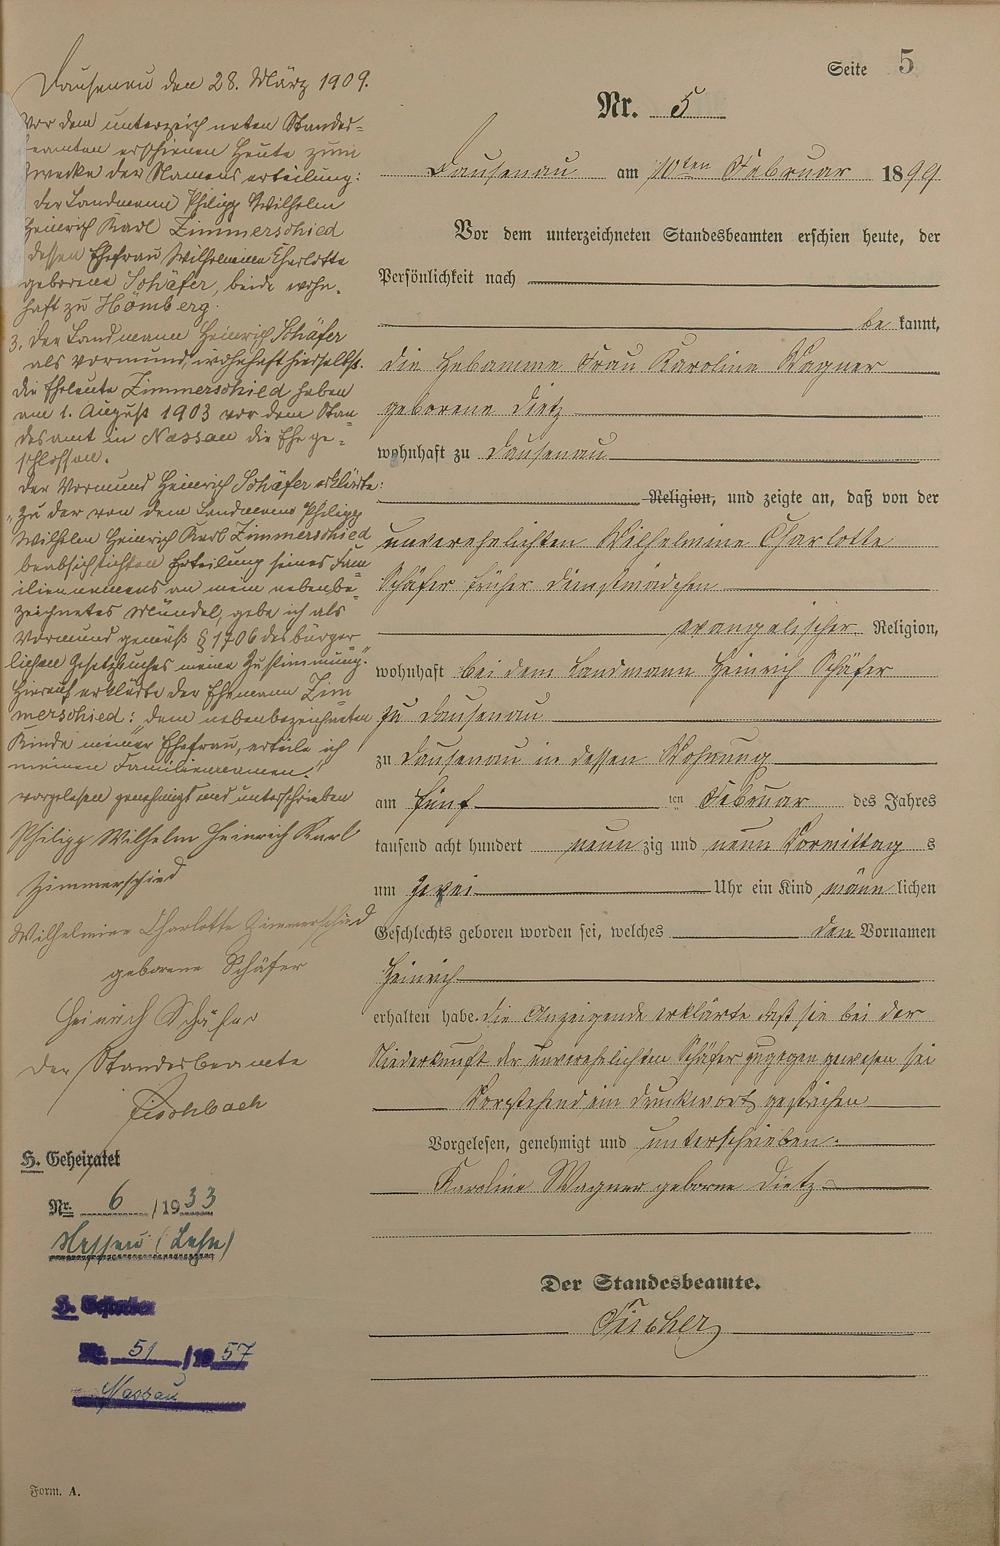 Seite 5
Nr. 5
Dausenau am 10ten Februar 1899
Vor dem unterzeichneten Standesbeamten erschien heute, der
Persönlichkeit nach
be kannt,
die Hebamme Frau Karoline Wagner
geborene Dietz
wohnhaft zu Dausenau
Religion, und zeigte an, daß von der
unverehelichten Wilhelmine Charlotte
Schäfer früher Dienstmädchen
evangelischer Religion,
wohnhaft bei dem Landmann Heinrich Schäfer
zu Dausenau
zu Dausenau in dessen Wohnung
am fünf ten Februar des Jahres
tausend acht hundert neun zig und neun Vormittag s
um zwei Uhr ein Kind männ lichen
Geschlechts geboren worden sei, welches den Vornamen
Heinrich
erhalten habe. Die Anzeigende erklärte daß sie bei der
Niederkunft der unverehelichten Schäfer zugegen gewesen sei
Vorstehend ein Druckwort gestrichen
Vorgelesen, genehmigt und unterschrieben.
Karoline Wagner geborne Dietz
Der Standesbeamte.
Fischer
Dausenau den 28. März 1909.
Vor dem unterzeichneten Standes-
beamten erschienen heute zum
Zwecke der Namenserteilung:
der Landmann Philipp Wilhelm
Heinrich Karl Zimmerschied
dessen Ehefrau Wilhelmine Charlotte
geborene Schäfer, beide wohn-
haft zu Hömberg.
3. der Landmann Heinrich Schäfer
als Vormund, wohnhaft hierselbst.
Die Eheleute Zimmerschied haben
am 1. August 1903 vor dem Stan-
desamt in Nassau die Ehe ge-
schlossen.
Der Vormund Heinrich Schäfer erklärte:
"Zu der von dem Landmann Philipp
Wilhelm Heinrich Karl Zimmerschied
beabsichtigten Erteilung seines Fam-
iliennamens an mein nebenbe-
zeichnetes Mündel, gebe ich als
Vormund gemäß § 1706 des bürger-
lichen Gesetzbuches meine Zustimmung."
Hierauf erklärte der Ehemann Zim-
merschied: "Dem nebenbezeichneten
Kinde meiner Ehefrau, erteile ich
meinen Familiennamen."
vorgelesen genehmigt und unterschrieben
Philipp Wilhelm Heinrich Karl
Zimmerschied
Wilhelmine Charlotte Zimmerschied
geborene Schäfer
Heinrich Schäfer
Der Standesbeamte
Fischbach
H. Geheiratet
Nr. 6 /1933
Nassau (Lahn)
H. Gestorben
Nr. 51 /1957
Nassau
Form. A.